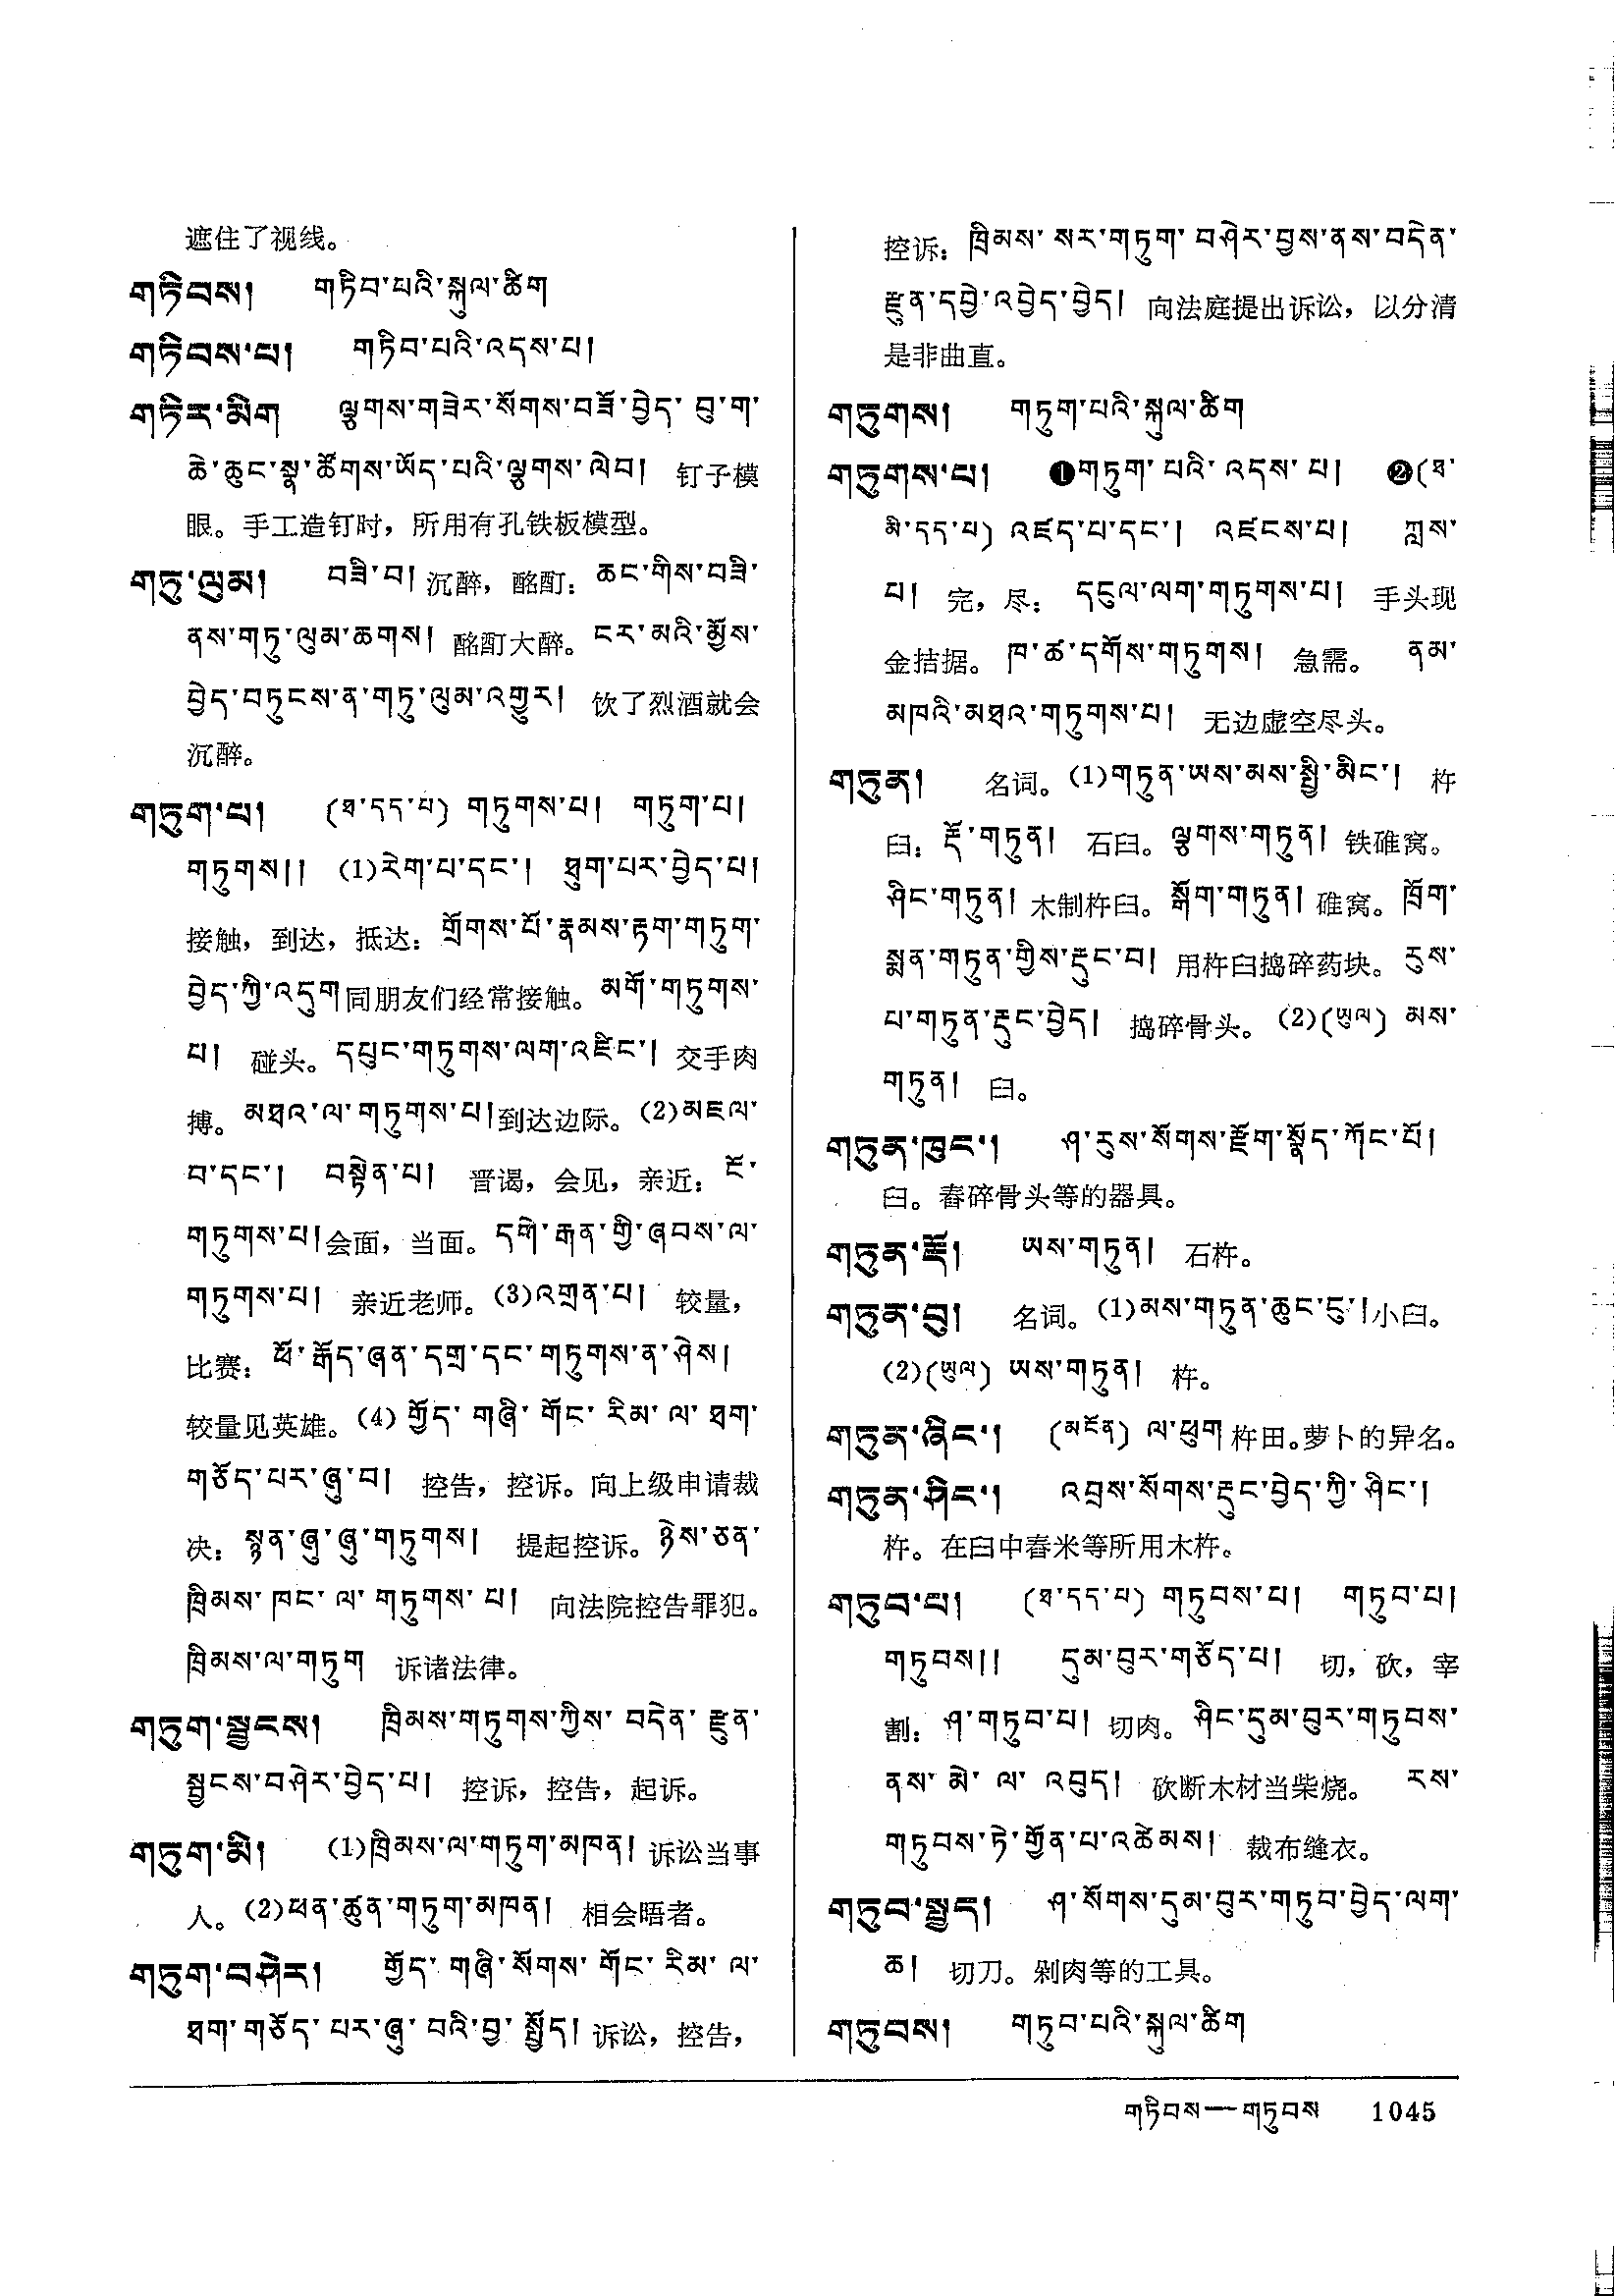 遮住了视线。
གཏིབས། གཏིབ་པའི་སྐུལ་ཚིག
གཏིབས་པ། གཏིབ་པའི་འདས་པ།
གཏིར་མིག ལྕགས་གཟེར་སོགས་བཟོ་བྱེད་ བུ་ག་
ཆེ་ཆུང་སྣ་ཚོགས་ཡོད་པའི་ལྕགས་ལེབ། 钉子模
眼。手工造钉时，所用有孔铁板模型。
གཏུ་ལུམ། བཟི་བ། 沉醉，酩酊：ཆང་གིས་བཟི་
ནས་གཏུ་ལུམ་ཆགས། 酩酊大醉。ངར་མའི་མྱོས་
བྱེད་བཏུངས་ན་གཏུ་ལུམ་འགྱུར། 饮了烈酒就会
沉醉。
གཏུག་པ། (ཐ་དད་པ) གཏུགས་པ། གཏུག་པ།
གཏུགས།། (1)རེག་པ་དང་། ཐུག་པར་བྱེད་པ།
接触，到达，抵达：གྲོགས་པོ་རྣམས་རྟག་གཏུག་
བྱེད་ཀྱི་འདུག同朋友们经常接触。མགོ་གཏུགས་
པ། 碰头。དཔུང་གཏུགས་ལག་འཛིང་། 交手肉
搏。མཐའ་ལ་གཏུགས་པ།到达边际。(2)མཇལ་
བ་དང་། བསྟེན་པ། 晋谒，会见，亲近：ངོ་
གཏུགས་པ།会面，当面。དགེ་རྒན་གྱི་ཞབས་ལ་
གཏུགས་པ། 亲近老师。(3)འགྲན་པ། 较量，
比赛：ཕོ་རྒོད་ཞན་དགྲ་དང་གཏུགས་ན་ཤེས།
较量见英雄。(4) གྱོད་ གཞི་ གོང་ རིམ་ ལ་ ཐག་
གཅོད་པར་ཞུ་བ། 控告，控诉。向上级申请裁
决：སྙན་ཞུ་ཞུ་གཏུགས། 提起控诉。ཉེས་ཅན་
ཁྲིམས་ ཁང་ ལ་ གཏུགས་ པ། 向法院控告罪犯。
ཁྲིམས་ལ་གཏུག 诉诸法律。
གཏུག་སྦྱངས། ཁྲིམས་གཏུགས་ཀྱིས་ བདེན་ རྫུན་
སྦྱངས་བཤེར་བྱེད་པ། 控诉，控告，起诉。
གཏུག་མི། (1)ཁྲིམས་ལ་གཏུག་མཁན། 诉讼当事
人。(2)ཕན་ཚུན་གཏུག་མཁན། 相会晤者。
གཏུག་བཤེར། གྱོད་ གཞི་ སོགས་ གོང་ རིམ་ ལ་
ཐག་ གཅོད་ པར་ ཞུ་ བའི་ བྱ་ སྤྱོད། 诉讼，控告，
控诉：ཁྲིམས་ སར་གཏུག་ བཤེར་བྱས་ནས་བདེན་
རྫུན་དབྱེ་འབྱེད་བྱེད། 向法庭提出诉讼，以分清
是非曲直。
གཏུགས། གཏུག་པའི་སྐུལ་ཚིག
གཏུགས་པ། ❶གཏུག་ པའི་ འདས་ པ། ❷(ཐ་
མི་དད་པ) འཛད་པ་དང་། འཛངས་པ། ཀླས་
པ། 完，尽：དངུལ་ལག་གཏུགས་པ། 手头现
金拮据。ཁ་ཚ་དགོས་གཏུགས། 急需。 ནམ་
མཁའི་མཐའ་གཏུགས་པ། 无边虚空尽头。
གཏུན། 名词。(1)གཏུན་ཡས་མས་སྤྱི་མིང་། 杵
臼：རྡོ་གཏུན། 石臼。ལྕགས་གཏུན། 铁碓窝。
ཤིང་གཏུན། 木制杵臼。སྒོག་གཏུན། 碓窝。ཁྲོག་
སྨན་གཏུན་གྱིས་རྡུང་བ། 用杵臼捣碎药块。རུས་
པ་གཏུན་རྡུང་བྱེད། 捣碎骨头。(2)(ཡུལ) མས་
གཏུན། 臼。
གཏུན་ཁུང་། ཤ་རུས་སོགས་རྫོག་སྣོད་ཀོང་པོ།
臼。舂碎骨头等的器具。
གཏུན་རྡོ། ཡས་གཏུན། 石杵。
གཏུན་བུ། 名词。(1)མས་གཏུན་ཆུང་ངུ་།小臼。
(2)(ཡུལ) ཡས་གཏུན། 杵。
གཏུན་ཞིང་། (མངོན) ལ་ཕུག 杵田。萝卜的异名。
གཏུན་ཤིང་། འབྲས་སོགས་རྡུང་བྱེད་ཀྱི་ཤིང་།
杵。在臼中舂米等所用木杵。
གཏུབ་པ། (ཐ་དད་པ) གཏུབས་པ། གཏུབ་པ།
གཏུབས།། དུམ་བུར་གཅོད་པ། 切，砍，宰
割：ཤ་གཏུབ་པ། 切肉。ཤིང་དུམ་བུར་གཏུབས་
ནས་ མེ་ ལ་ འབུད། 砍断木材当柴烧。 རས་
གཏུབས་ཏེ་གྱོན་པ་འཚེམས། 裁布缝衣。
གཏུབ་སྤྱད། ཤ་སོགས་དུམ་བུར་གཏུབ་བྱེད་ལག་
ཆ། 切刀。剁肉等的工具。
གཏུབས། གཏུབ་པའི་སྐུལ་ཚིག
གཏིབས—གཏུབས 1045